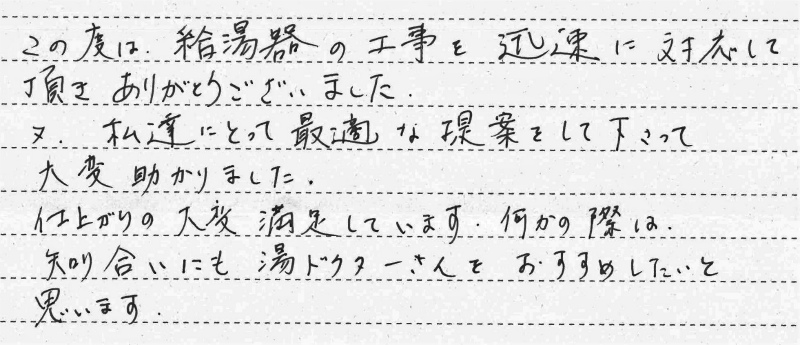 この度は、給湯器の工事を迅速に対応して
頂きありがとうございました。
又、私達にとって最適な提案をして下さって
大変助かりました。
仕上がりの大変満足しています。何かの際は、
知り合いにも湯ドクターさんをおすすめしたいと
思います。